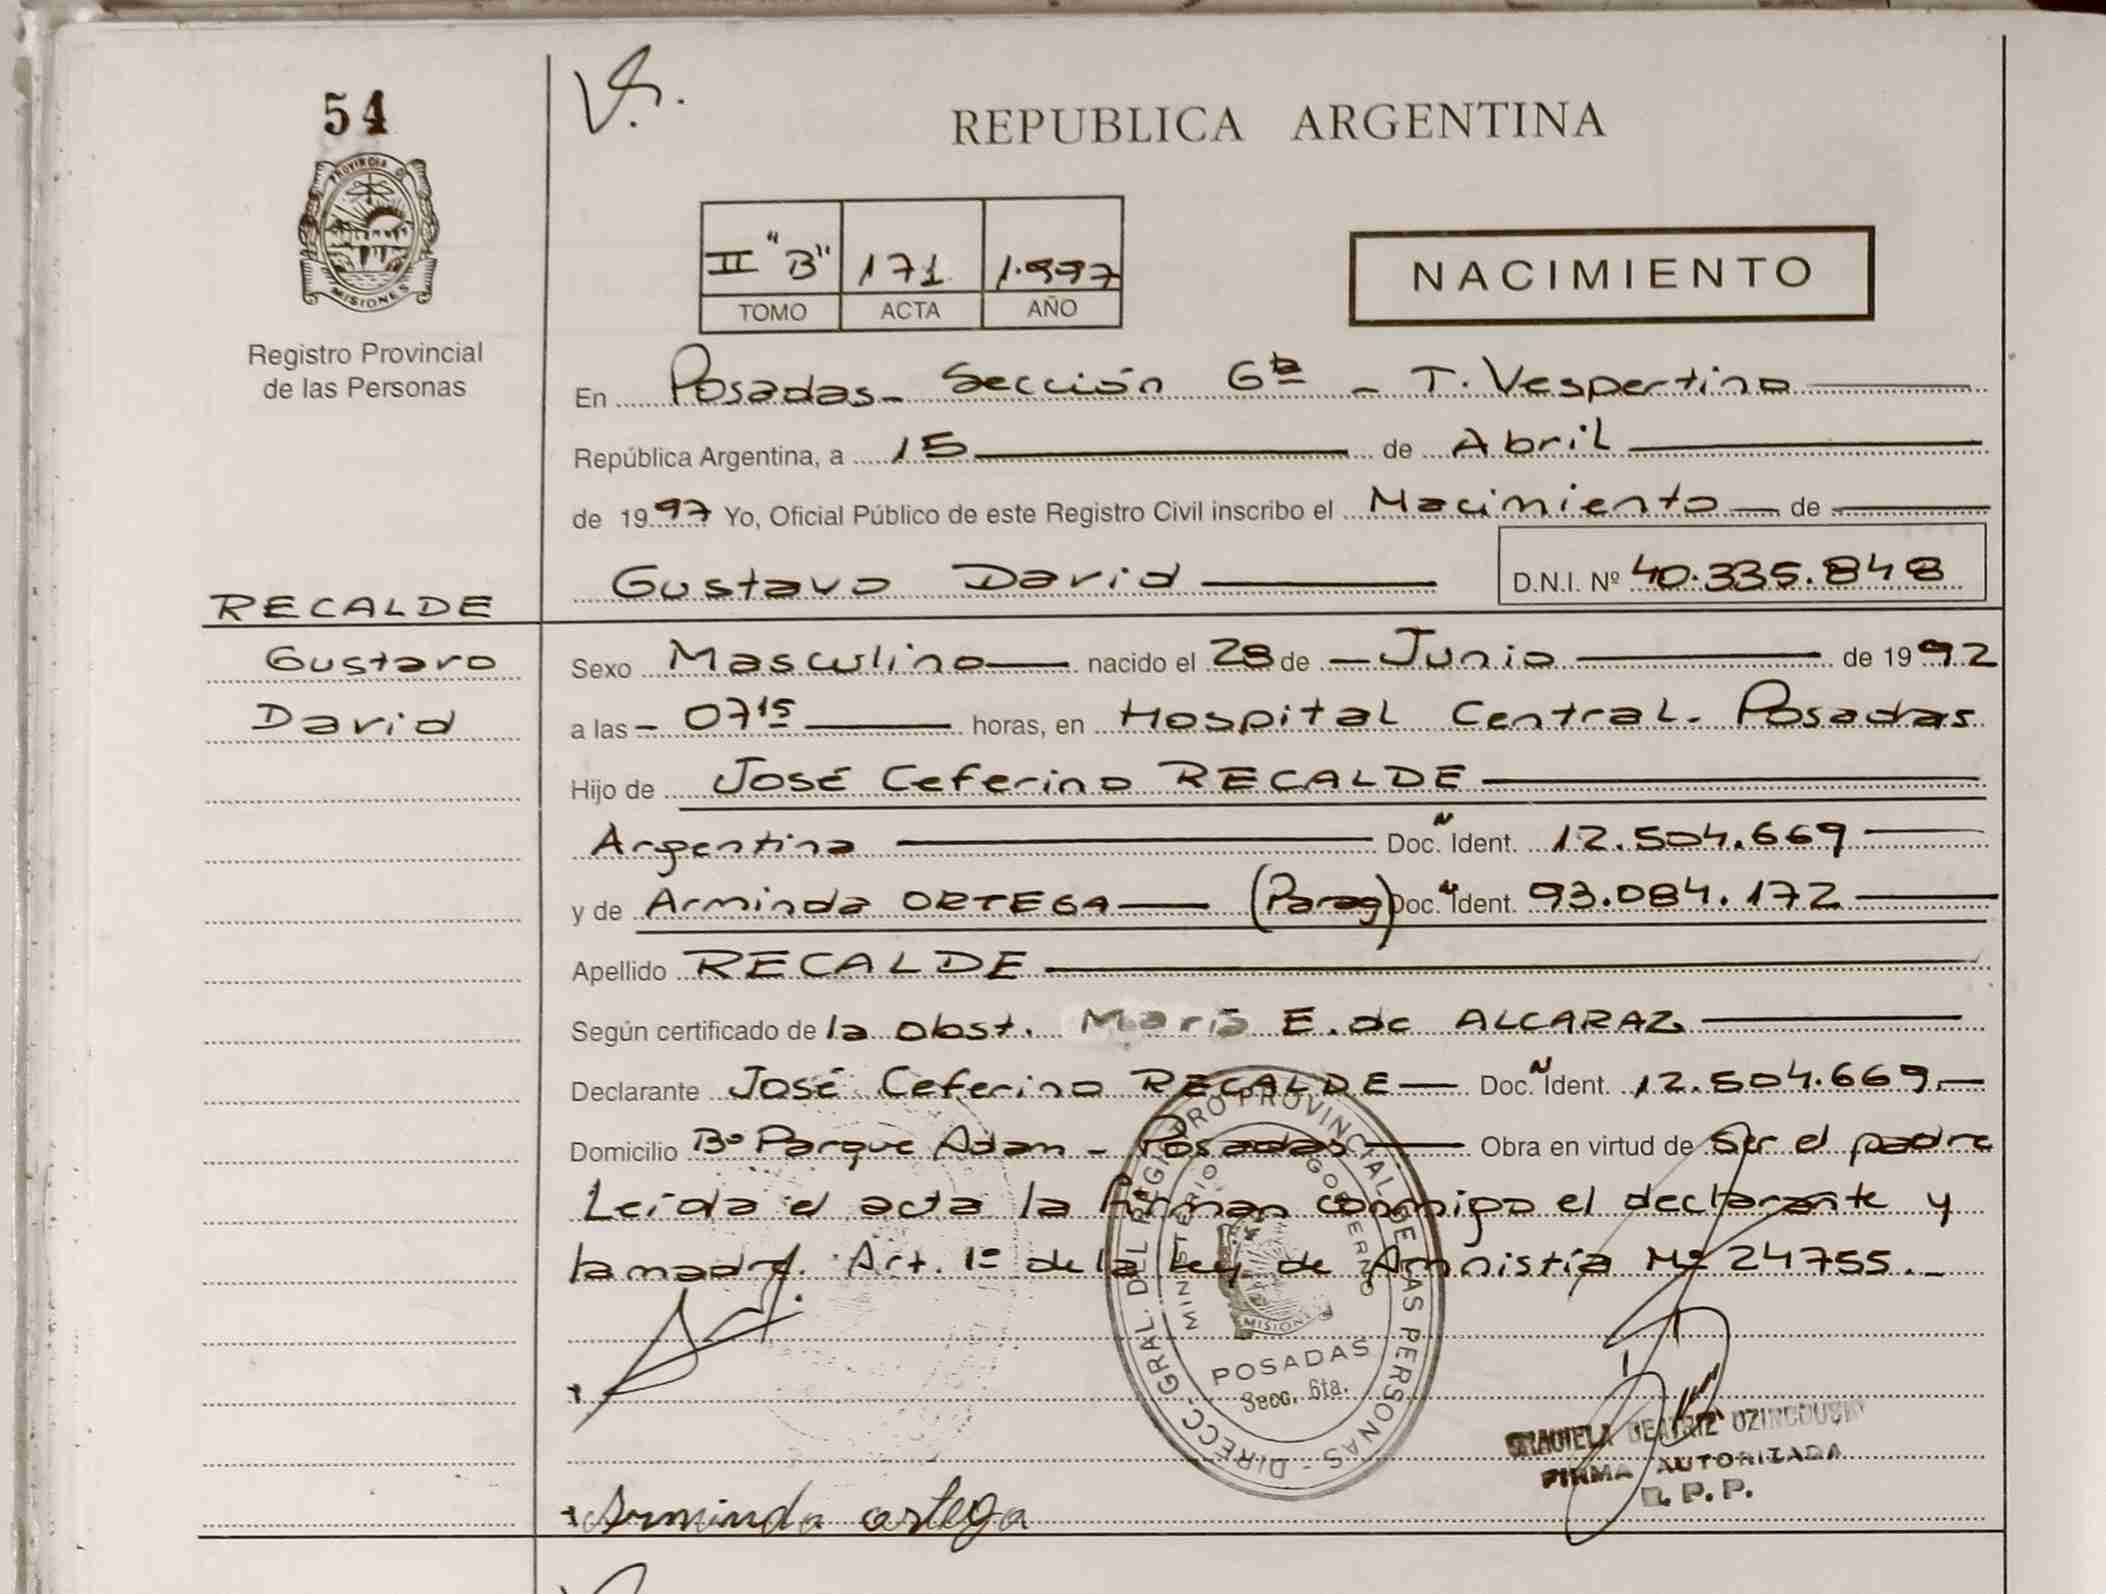 54
PROVINCIA D
MISIONES
Registro Provincial
de las Personas
RECALDE
Gustavo
David
REPUBLICA ARGENTINA
II "B" 171 1.997
TOMO ACTA AÑO
NACIMIENTO
En Posadas - Sección 6ta - T. Vespertino
República Argentina, a 15 de Abril
de 1997 Yo, Oficial Público de este Registro Civil inscribo el Nacimiento de
Gustavo David D.N.I. Nº 40.335.848
Sexo Masculino nacido el 28 de - Junio de 1992
a las - 0715 horas, en Hospital Central - Posadas
Hijo de José Ceferino RECALDE
Argentina Doc. Ident. 12.504.669
y de Arminda ORTEGA (Parag) Doc. Ident. 93.084.172
Apellido RECALDE
Según certificado de la obst. María E. de ALCARAZ
Declarante José Ceferino RECALDE Doc. Ident. 12.504.669.-
Domicilio Bº Parque Adam - Posadas Obra en virtud de Ser el padre
Leída el acta la firman conmigo el declarante y
la madre. Art. 1º de la Ley de Amnistía Nº 24755.-
DIRECC. GRAL. DEL REGISTRO PROVINCIAL DE LAS PERSONAS
MINISTERIO GOBIERNO
MISIONES
POSADAS
Secc. 6ta.
GRACIELA BEATRIZ
FIRMA AUTORIZADA
R. P. P.
Arminda ortega